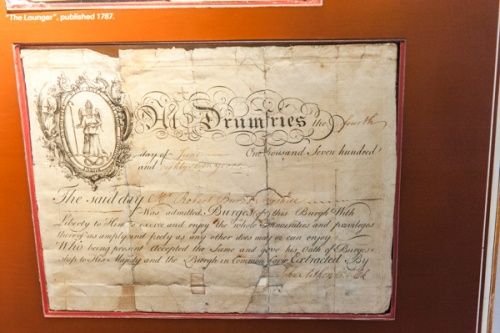 "The Lounger", published 1787.
At Drumfries the fourth
day of June One thousand Seven hundred
and Eighty
The said day Mr Robert Burns
Was admitted Burges of this Burgh With
Liberty to Him to excerce and enjoy the whole Immunities and privileges
thereof as amply and freely as any other does may or can enjoy
Who being present Accepted the Same and gave his Oath of Burges-
ship to His Majesty and the Burgh in Common form Extracted By